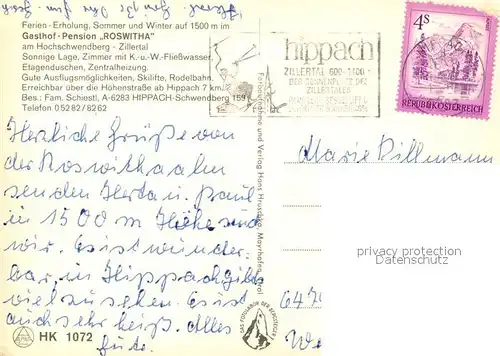 Ferien-Erholung, Sommer und Winter auf 1500 m im
Gasthof-Pension „ROSWITHA"
am Hochschwendberg - Zillertal
Sonnige Lage, Zimmer mit K.-u.-W.-Fließwasser,
Etagenduschen, Zentralheizung.
Gute Ausflugsmöglichkeiten, Skilifte, Rodelbahn.
Erreichbar über die Höhenstraße ab Hippach 7 km.
Bes.: Fam. Schiestl, A-6283 HIPPACH-Schwendberg 159
Telefon 05282/8262
Herzliche Grüße von
der Roswithaalm
senden Herta u. Paul
in 1500 m Höhe sind
wir. Es ist wunder-
bar, in Hippach gibts
viel zu sehen. Es ist
auch sehr heiß. Alles
Gute.
HK 1072
Farbaufnahme und Verlag Hans Hruschka, Mayrhofen, Tirol
DAS FOTOHAUS DER BERGSTEIGER
hippach
ZILLERTAL 600-1100
DER SONNENPLATZ DES
ZILLERTALES
4S
REPUBLIK ÖSTERREICH
Marie Dillmann
privacy protection
Datenschutz